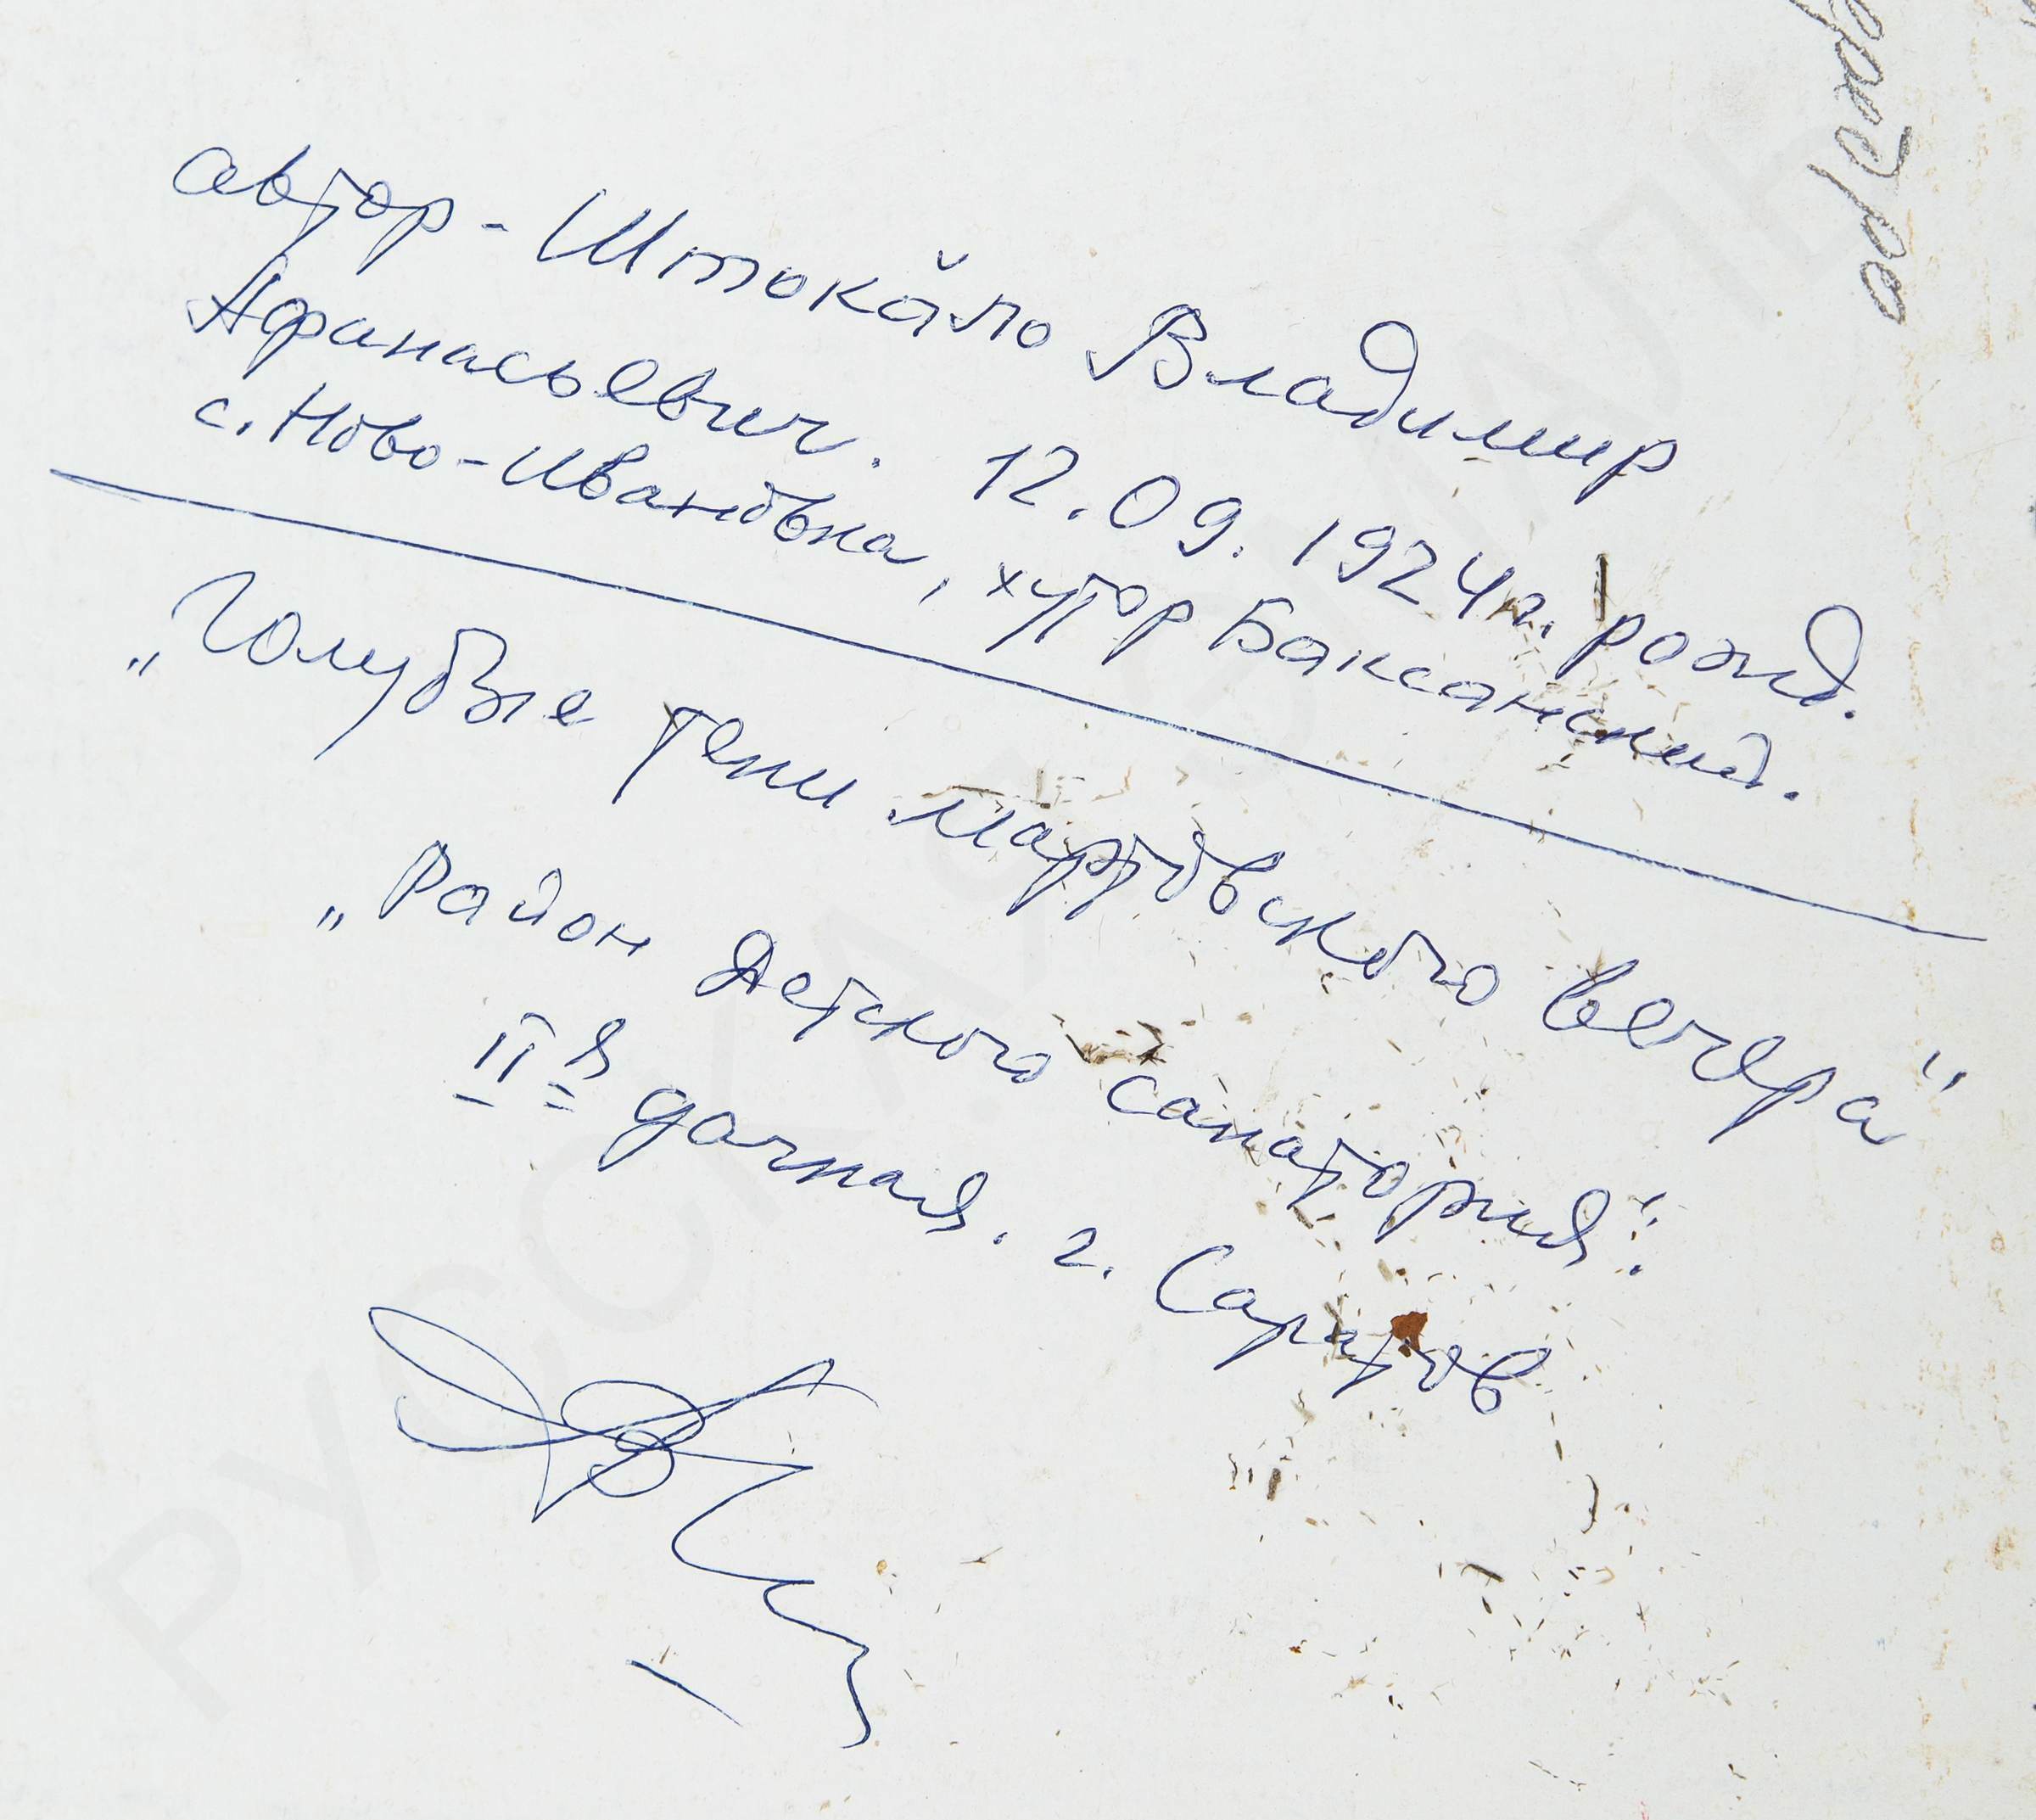 автор - Штока́ло Владимир
Афанасьевич. 12.09.1924г. рожд.
с. Ново-Ивановка, хутор Баксанский.
„Голубые тени мартовского вечера"
„Район Детского санатория".
II=я дачная. г. Саратов
РУССКАЯ ЭМАЛЬ